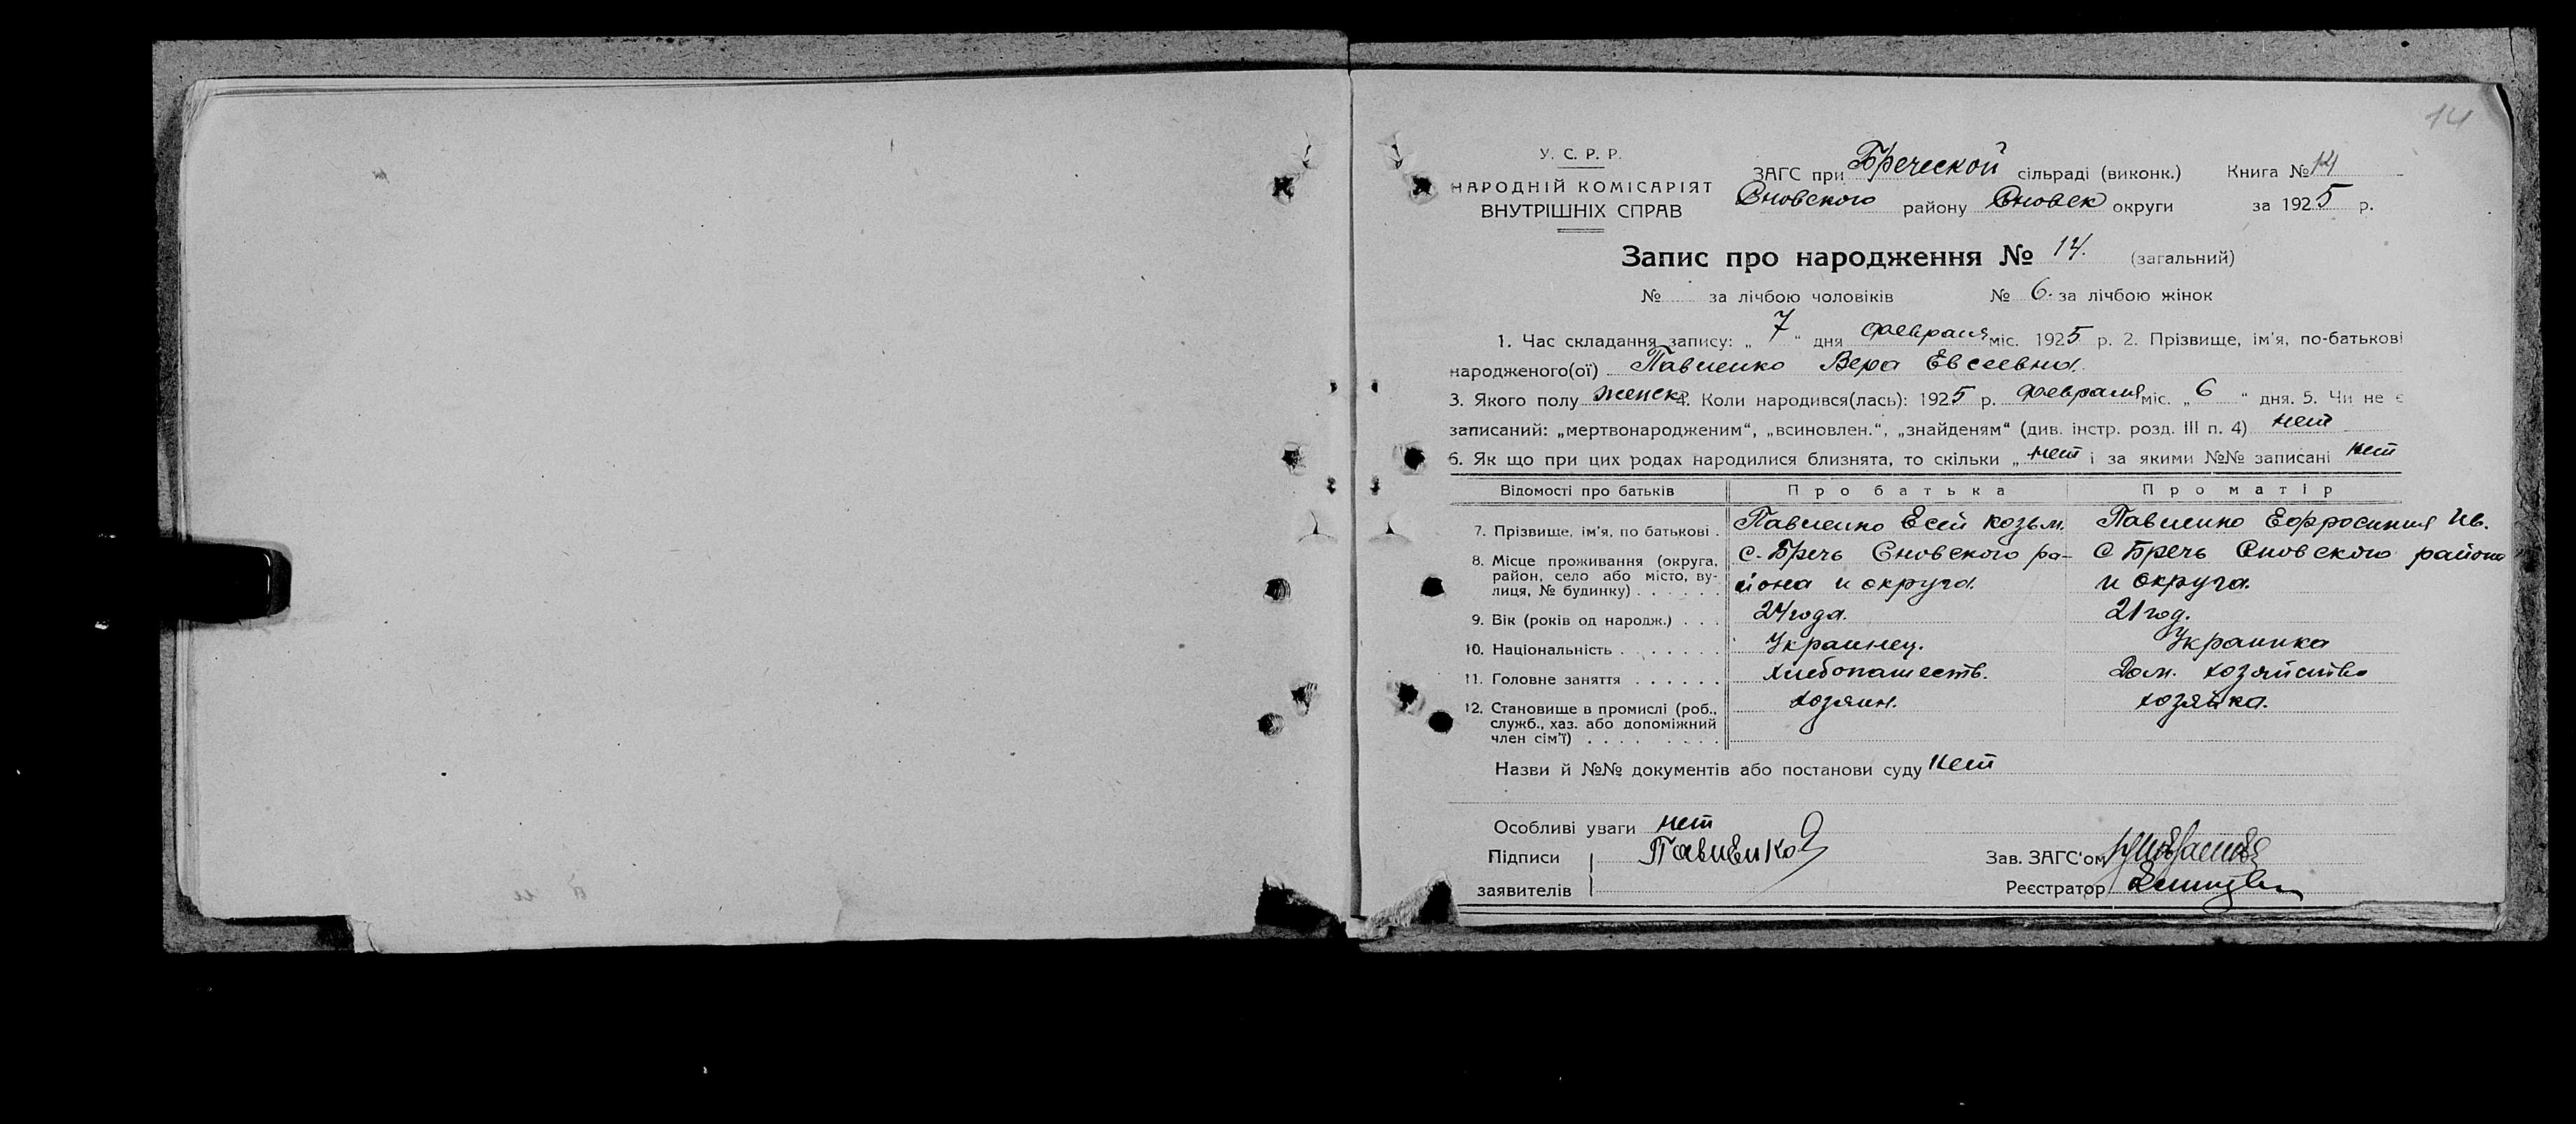 14
У. С. Р. Р.
НАРОДНІЙ КОМІСАРІЯТ
ВНУТРІШНІХ СПРАВ
ЗАГС при Бреческой сільраді (виконк.) Книга № 14
Сновского району Сновск округи за 1925 р.
Запис про народження № 14. (загальний)
№ за лічбою чоловіків № 6. за лічбою жінок
1. Час складання запису: „7“ дня февраля міс. 1925 р. 2. Прізвище, ім'я, по-батькові
народженого(ої) Павленко Вера Евсеевна.
3. Якого полу женск. 4. Коли народився(лась): 1925 р. февраля міс. „6“ дня. 5. Чи не є
записаний: „мертвонародженим“, „всиновлен.“, „знайденям“ (див. інстр. розд. III п. 4) нет
6. Як що при цих родах народилися близнята, то скільки „нет і за якими №№ записані нет
Відомості про батьків Про батька Про матір
7. Прізвище, ім'я, по батькові . Павленко Есей Козьм. Павленко Ефросиния Ив.
8. Місце проживання (округа, район, село або місто, вулиця, № будинку) . . . . . . с. Бречь Сновского района и округа. с Бречь Сновского района и округа.
9. Вік (років од народж.) . . . 24 года. 21 год.
10. Національність . . . . . . . Украинец. Украинка
11. Головне заняття . . . . . . хлебопашеств. Дом. хозяйство
12. Становище в промислі (роб., служб., хаз. або допоміжний член сім'ї) . . . . . . . . хозяин. хозяйка.
Назви й №№ документів або постанови суду нет
Особливі уваги нет
Підписи Павленко Зав. ЗАГС'ом
заявителів Реєстратор